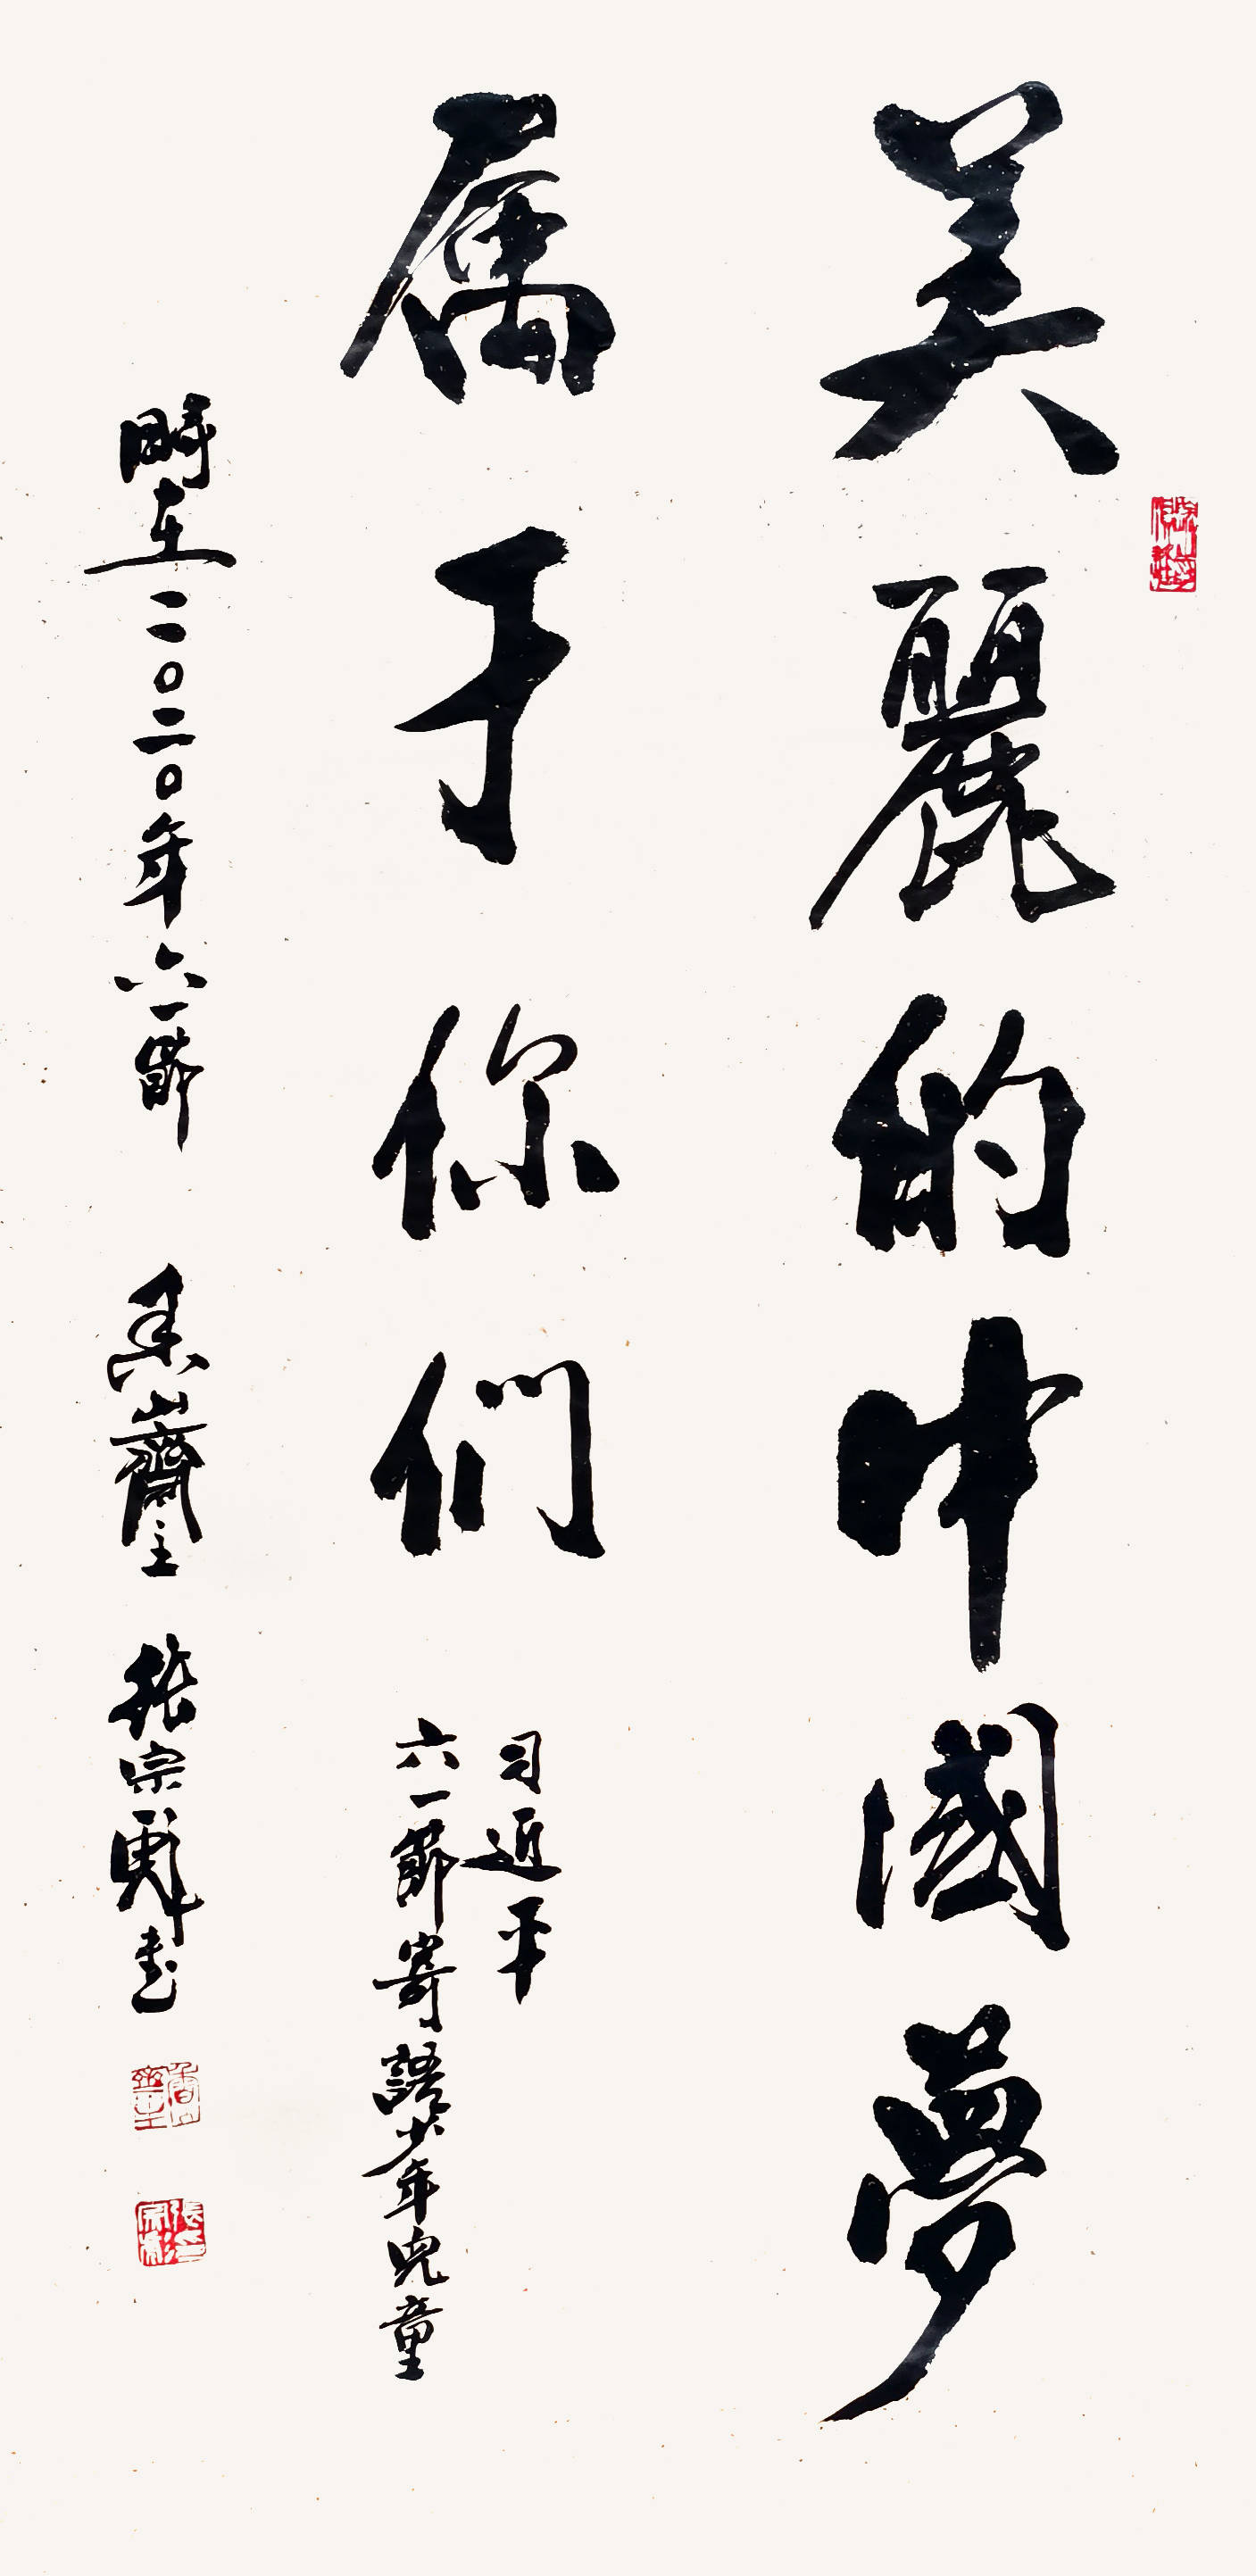 美麗的中國夢
属于你们
习近平
六一節寄語少年兒童
時在二〇二〇年六一節
香山齋主
張宗彪書